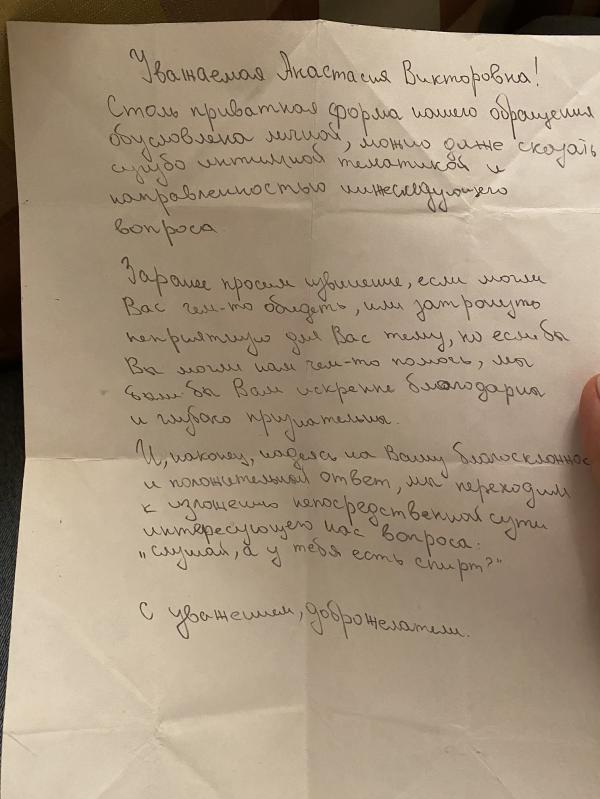 Уважаемая Анастасия Викторовна!
Столь приватная форма нашего обращения
обусловлена личной, можно даже сказать
сугубо интимной тематикой и
направленностью нижеследующего
вопроса.
Заранее просим извинение, если могли
Вас чем-то обидеть, или затронуть
неприятную для Вас тему, но если бы
Вы могли нам чем-то помочь, мы
были бы Вам искренне благодарны
и глубоко признательны.
И, наконец, надеясь на Вашу благосклоннос
и положительный ответ, мы переходим
к изложению непосредственной сути
интересующего нас вопроса:
„Слушай, а у тебя есть спирт?"
С уважением, доброжелатели.